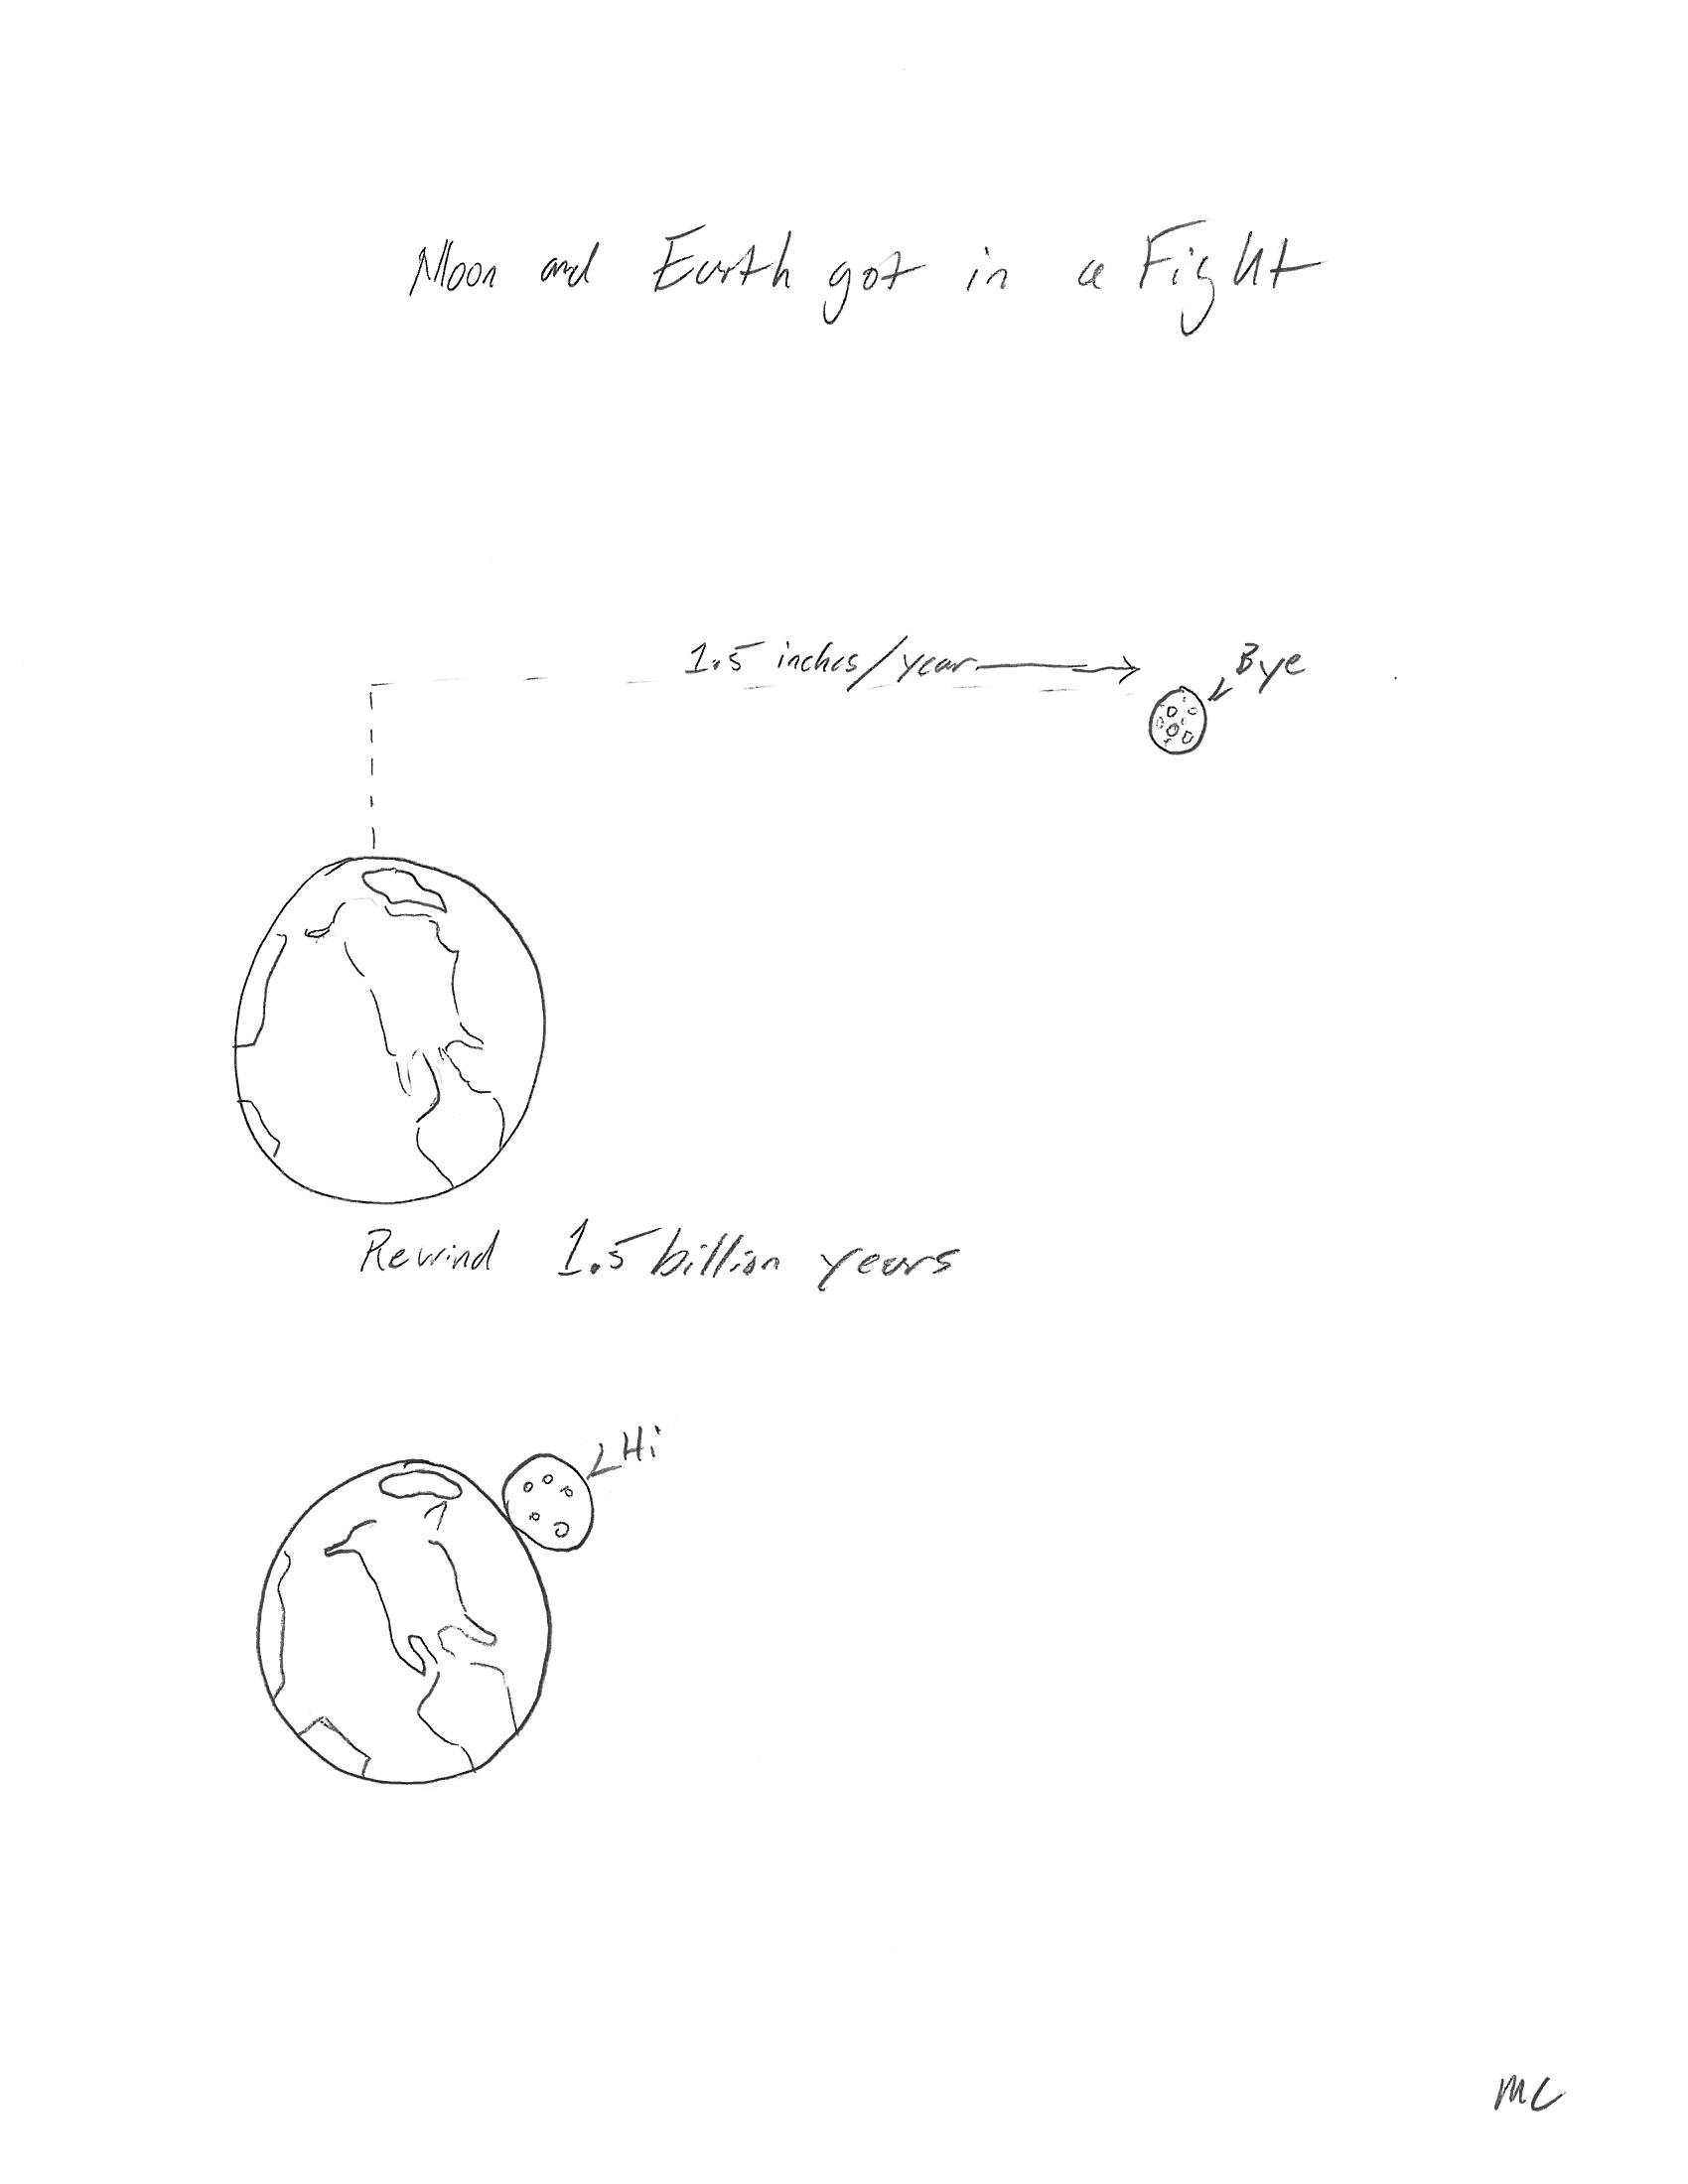 Moon and Earth got in a Fight
1.5 inches/year
Bye
Rewind 1.5 billion years
Hi
MC